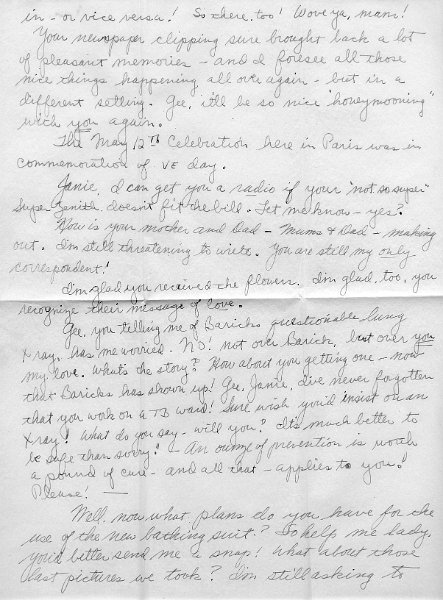 in - or vice versa! So there, too! Wove ya, mam!
Your newspaper clipping sure brought back a lot
of pleasant memories - and I foresee all those
nice things happening all over again - but in a
different setting. Gee, it'll be so nice "honeymooning"
with you again.
The May 12th Celebration here in Paris was in
commemoration of VE day.
Janie, I can get you a radio if your "not so super"
super Zenith doesn't fit the bill. Let me know - yes?
How is your mother and Dad - Mums & Dad - making
out. I'm still threatening to write. You are still my only
correspondent!
I'm glad you received the flowers. I'm glad, too, you
recognize their message of love.
Gee, you telling me of Baricks questionable lung
Xray, has me worried. NO! not over Barick, but over you
my love. What's the story? How about you getting one - now
that Baricks has shown up! Gee, Janie, I've never forgotten
that you work on a TB ward! Sure wish you'd insist on an
Xray! What do you say - will you? It's much better to
be safe than sorry! - An ounce of prevention is worth
a pound of cure - and all that - applies to you!
Please! —
Well, now what plans do you have for the
use of the new bathing suit? So help me lady,
you'd better send me a snap! What about those
last pictures we took? I'm still asking to